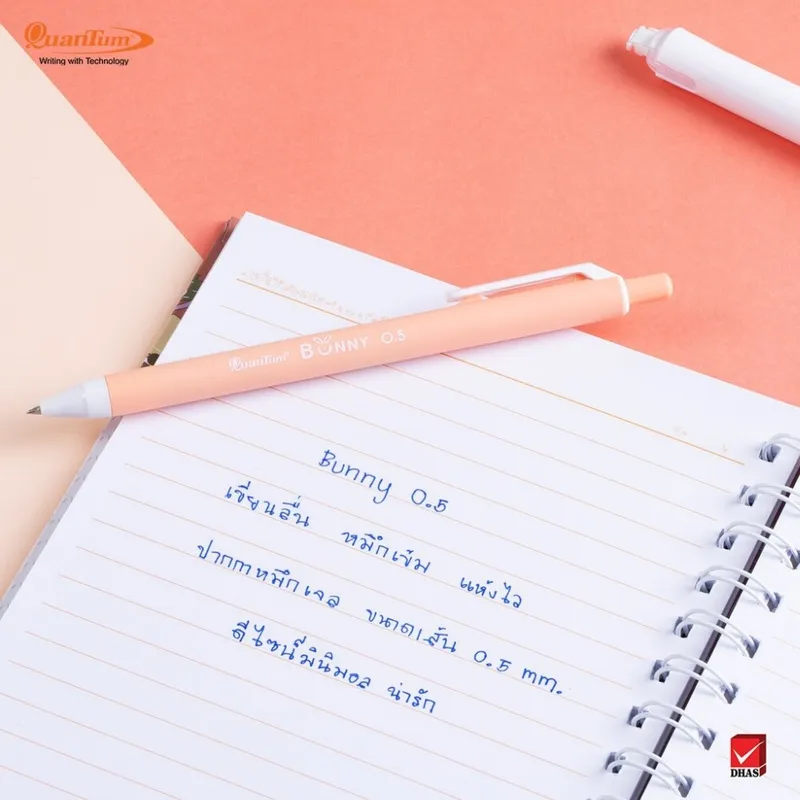 QuanTum
Writing with Technology
QuanTum BUNNY 0.5
Bunny 0.5
เขียนลื่น หมึกเข้ม แห้งไว
ปากกาหมึกเจล ขนาดเส้น 0.5 mm.
ดีไซน์มินิมอล น่ารัก
DHAS